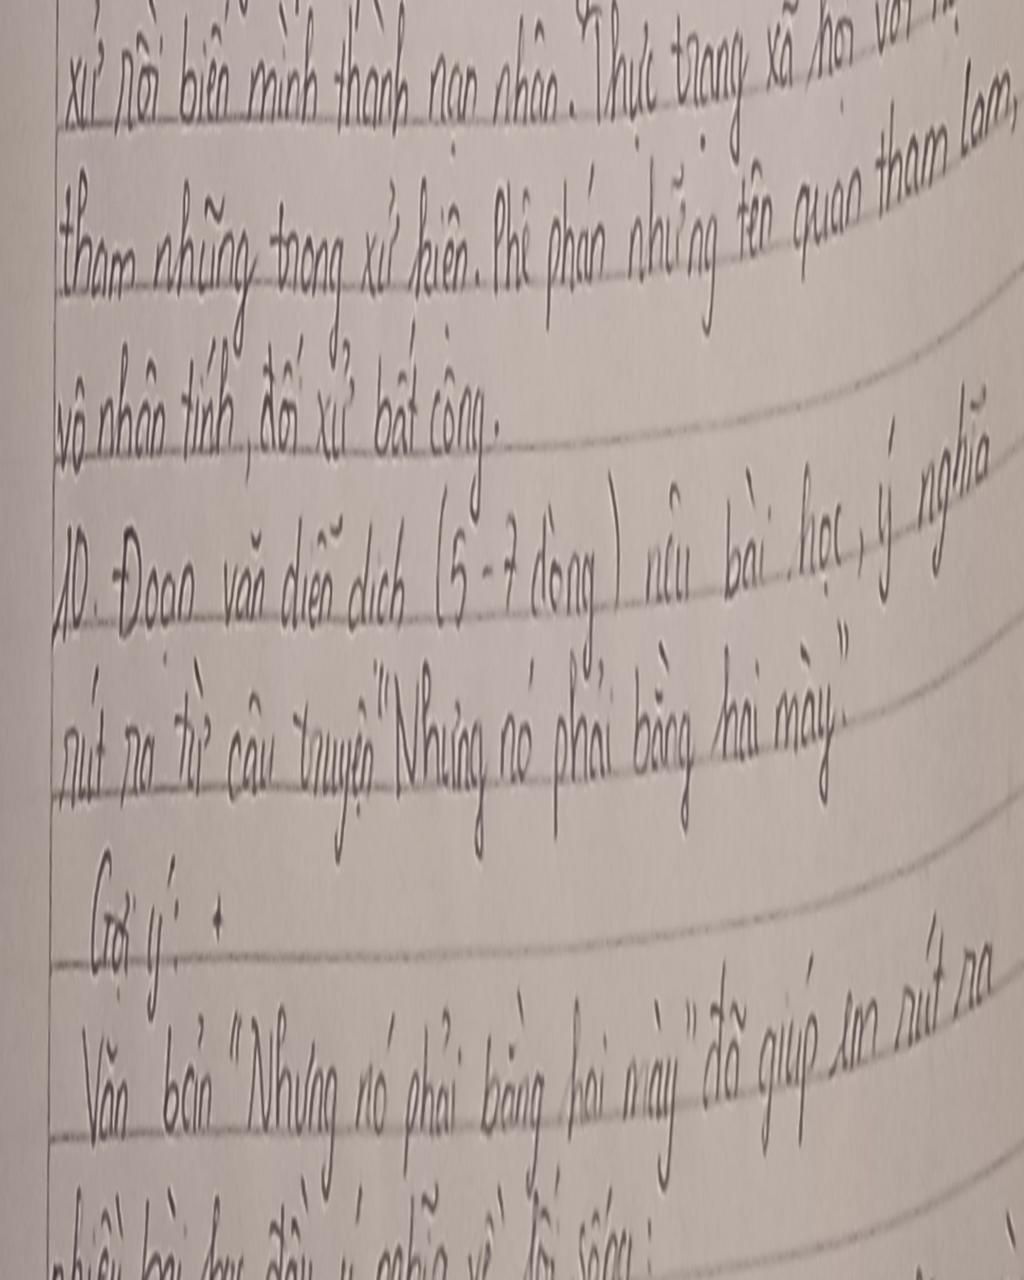 xử rồi biến mình thành nạn nhân. Thực trạng xã hội với
tham nhũng trong xử kiện. Phê phán những tên quan tham lam,
vô nhân tính, đối xử bất công.
10. Đoạn văn diễn dịch (5-7 dòng) nêu bài học, ý nghĩa
rút ra từ câu truyện "Nhưng nó phải bằng hai mày".
Gợi ý: +
Văn bản "Nhưng nó phải bằng hai mày" đã giúp em rút ra
nhiều bài học đầy ý nghĩa về lối sống: